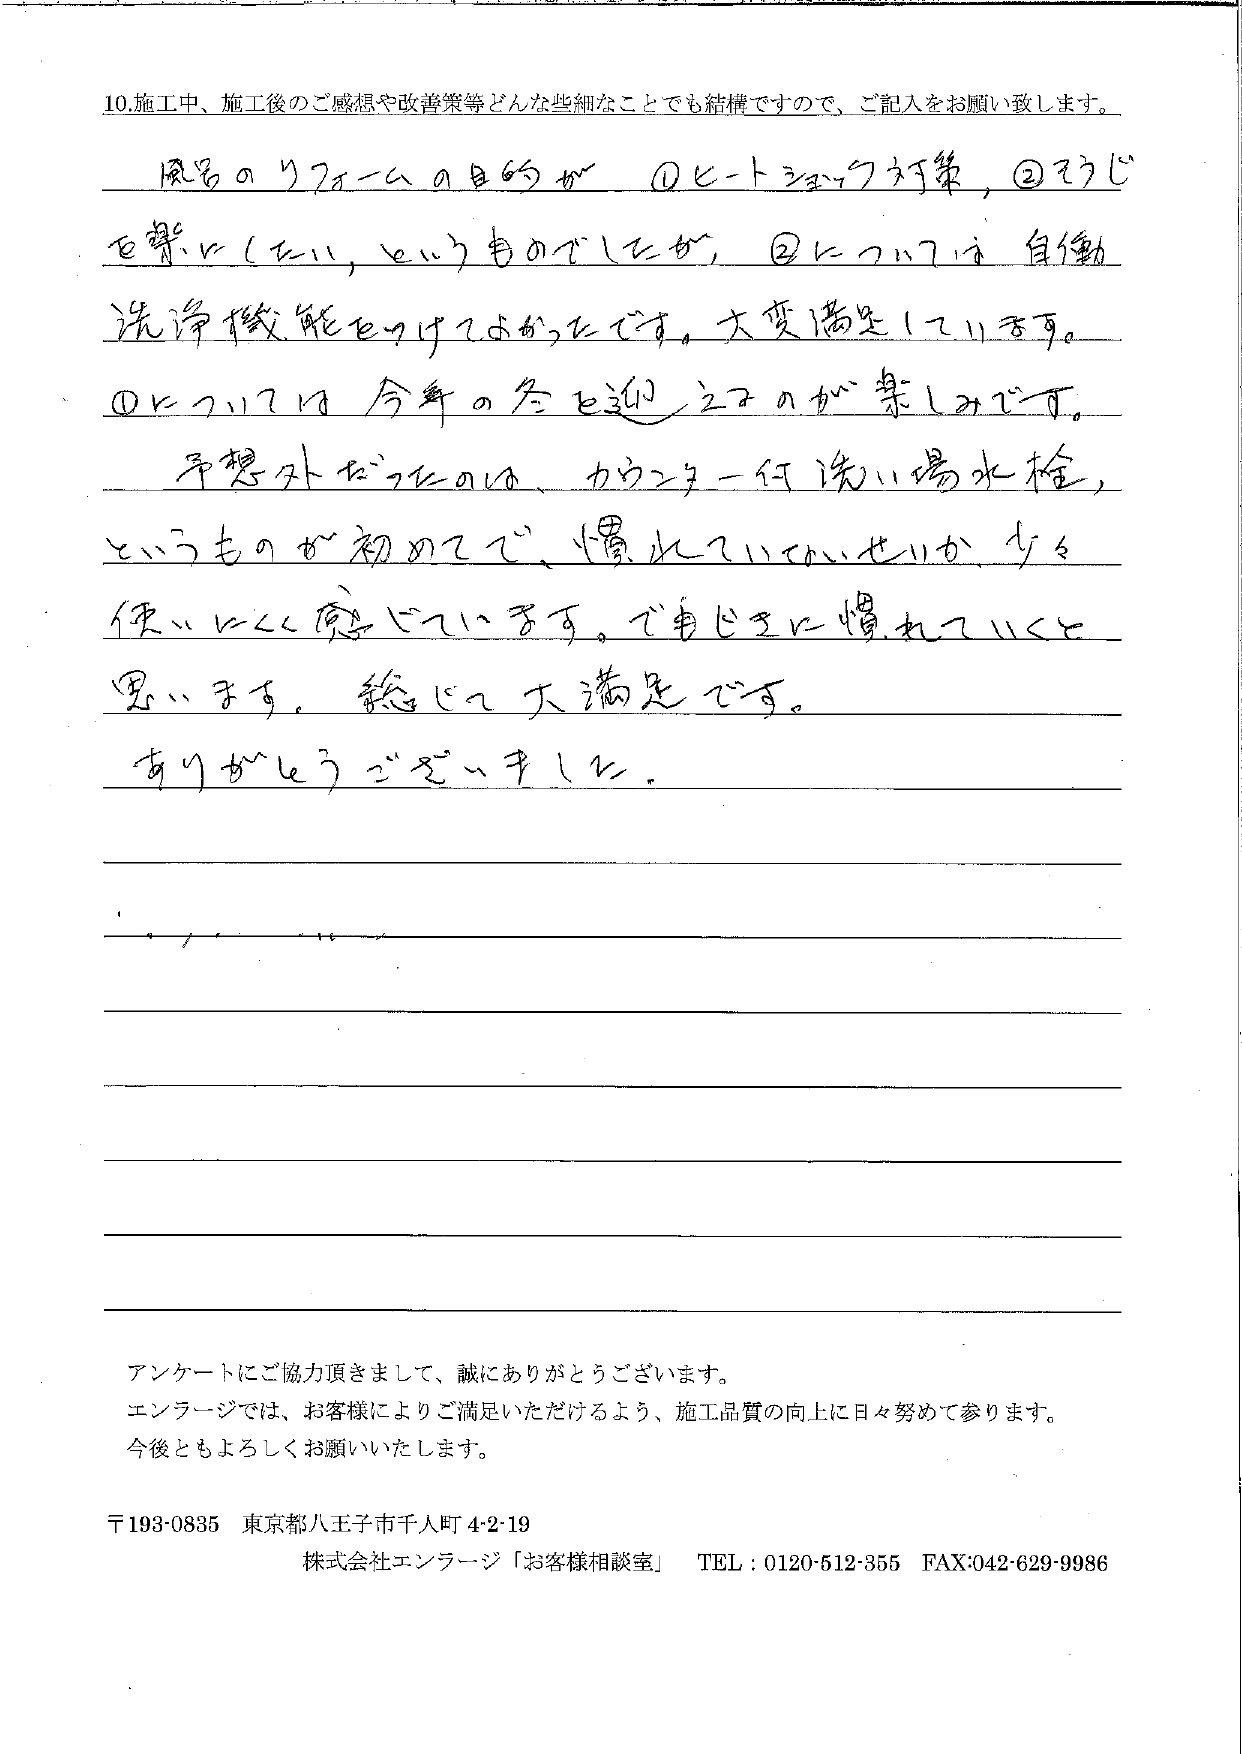 10.施工中、施工後のご感想や改善策等どんな些細なことでも結構ですので、ご記入をお願い致します。
風呂のリフォームの目的が ①ヒートショック対策, ②そうじ
を楽にしたい, というものでしたが, ②については 自働
洗浄機能をつけてよかったです。大変満足しています。
①については 今年の冬を迎えるのが楽しみです。
予想外だったのは、カウンター付洗い場水栓,
というものが初めてで、慣れていないせいか、少々
使いにくく感じています。でもじきに慣れていくと
思います。総じて大満足です。
ありがとうございました.
アンケートにご協力頂きまして、誠にありがとうございます。
エンラージでは、お客様によりご満足いただけるよう、施工品質の向上に日々努めて参ります。
今後ともよろしくお願いいたします。
〒193-0835 東京都八王子市千人町 4-2-19
株式会社エンラージ「お客様相談室」 TEL : 0120-512-355 FAX:042-629-9986